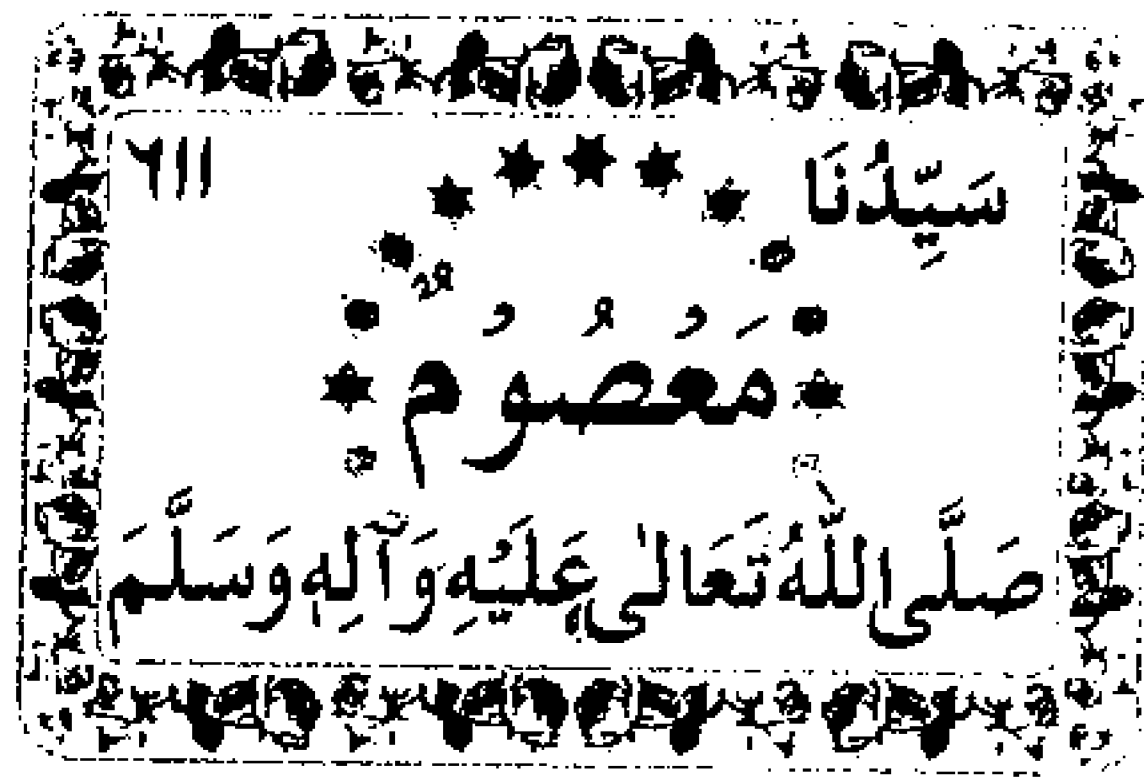 سَيِّدُنَا ۶۱۱
مَعْصُوْمٌ
صَلَّى اللّٰهُ تَعَالٰى عَلَيْهِ وَآلِهٖ وَسَلَّمَ